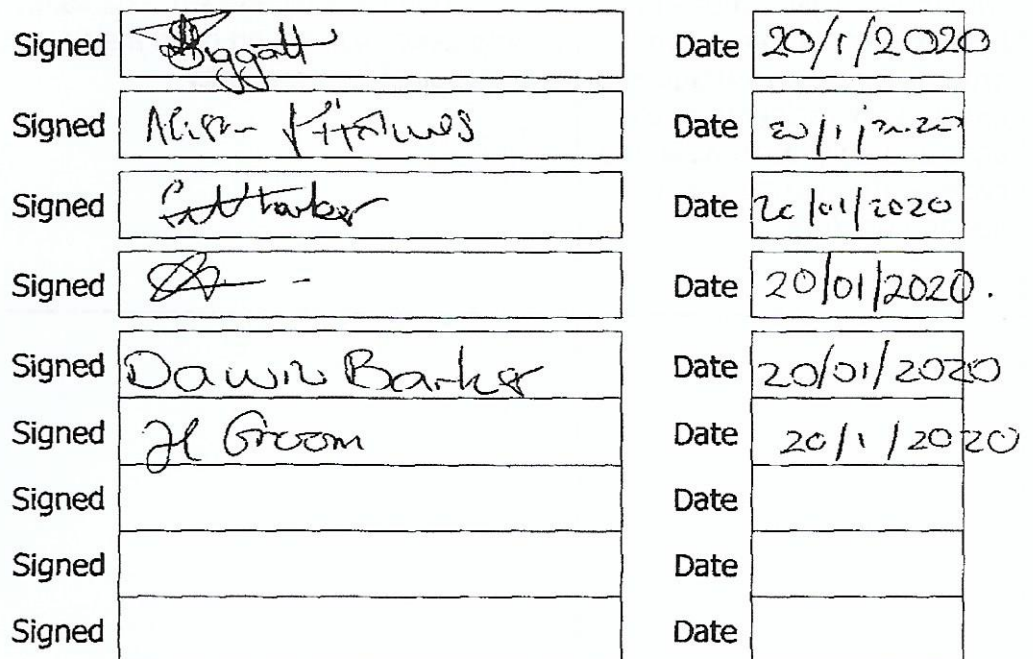 Signed Date 20/1/2020
Signed Date 20/1/2020
Signed Date 20/01/2020
Signed Date 20/01/2020.
Signed Barker Date 20/01/2020
Signed H Groom Date 20/1/2020
Signed Date
Signed Date
Signed Date